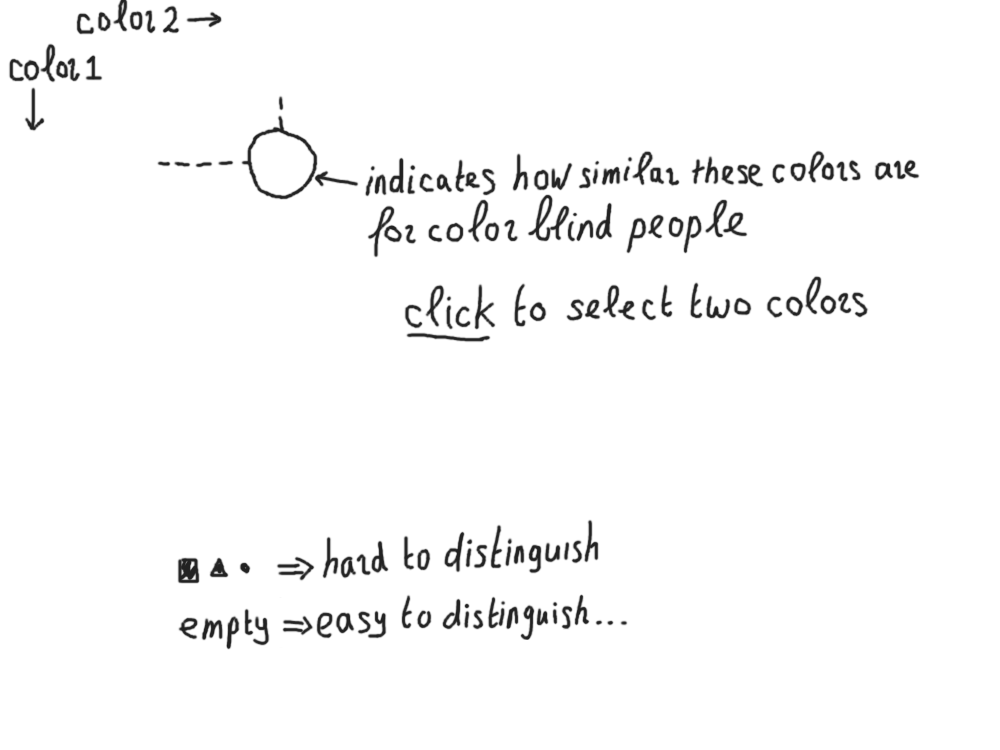 color2 →
color1
↓
indicates how similar these colors are
for color blind people
click to select two colors
⇒ hard to distinguish
empty ⇒ easy to distinguish...